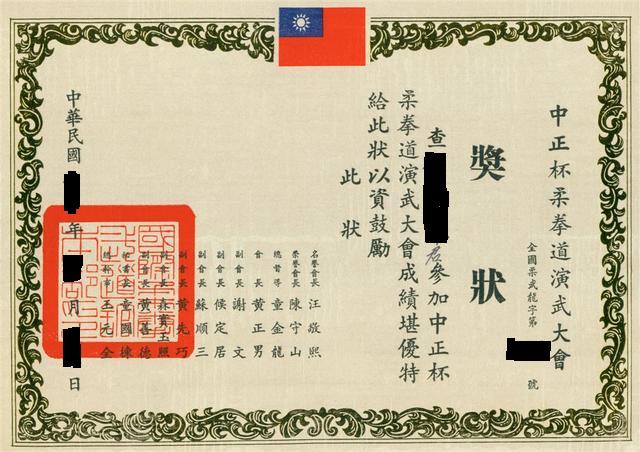 中正杯柔拳道演武大會
全國柔武龍字第 號
獎狀
查 君參加中正杯
柔拳道演武大會成績堪優特
給此狀以資鼓勵
此狀
名譽會長 汪敬熙
榮譽會長 陳守山
總督導 童金龍
會長 黃正男
副會長 謝文
副會長 侯定居
副會長 蘇順三
副會長 黃先巧
副會長 黃善德
王元全
中華民國 年 月 日